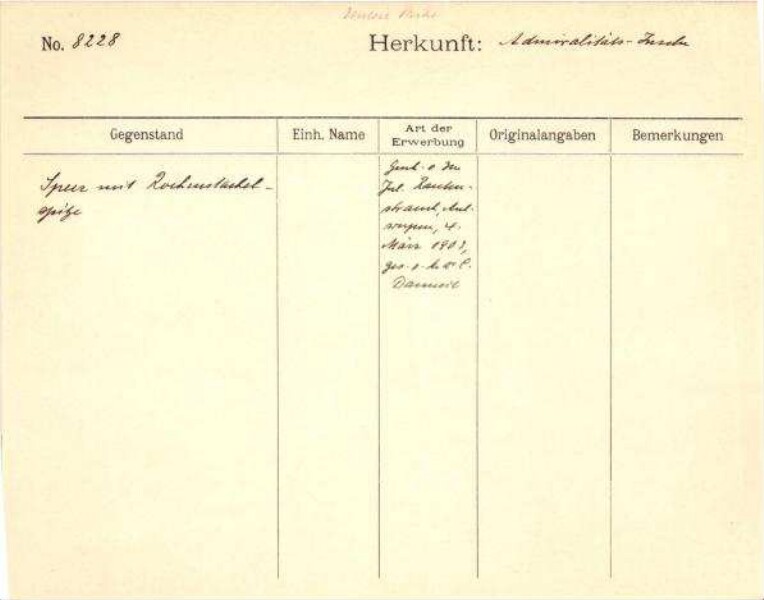 No. 8228
Herkunft: Admiralitäts-Inseln
Gegenstand
Einh. Name
Art der
Erwerbung
Originalangaben
Bemerkungen
Speer mit Rochenstachel-
spitze
Gesch. v. Frl.
Jul. Rauten-
strauch, Ant-
werpen, 4.
März 1903,
ges. v.